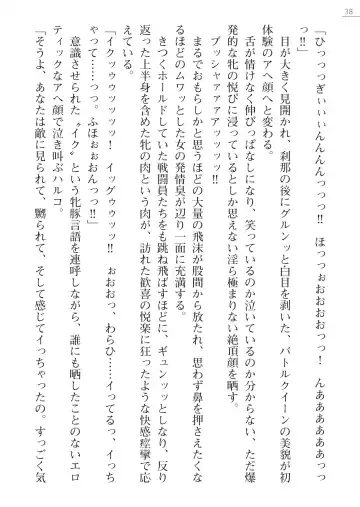 38
「ひっっっぎぃぃぃんんんんっっっ!! ほっっぉおおおおっっ! んああああああっっ
‼」
目が大きく見開かれ、刹那の後にグルンッと白目を剥いた、バトルクイーンの美貌が初
体験のアヘ顔へと変わる。
舌が情けなく伸びっぱなしになり、笑っているのか泣いているのか分からない、ただ爆
発的な牝の悦びに浸っているとしか思えない淫ら極まりない絶頂顔を晒す。
プッシャァァァアッッッ‼
まるでおもらしかと思うほどの大量の飛沫が股間から放たれ、思わず鼻を押さえたくな
るほどのムワッとした女の発情臭が辺り一面に充満する。
きつくホールドしていた戦闘員たちをも跳ね飛ばすほどに、ギュンッッとしなり、反り
返った上半身を含めた牝の肉という肉が、訪れた歓喜の悦楽に狂ったような快感痙攣で応
えている。
「イクゥゥゥッッッ! イッグゥゥッッ‼ ぉおおっ、わらひ……イってるっ、イっち
ゃって……っっ。ふほぉぉおんっっ‼」
意識させられた〝イク〟という牝豚言語を連呼しながら、誰にも晒したことのないエロ
ティックなアヘ顔で泣き叫ぶハルコ。
「そうよ、あなたは敵に見られて、嬲られて、そして感じてイっちゃったの。すっごく気